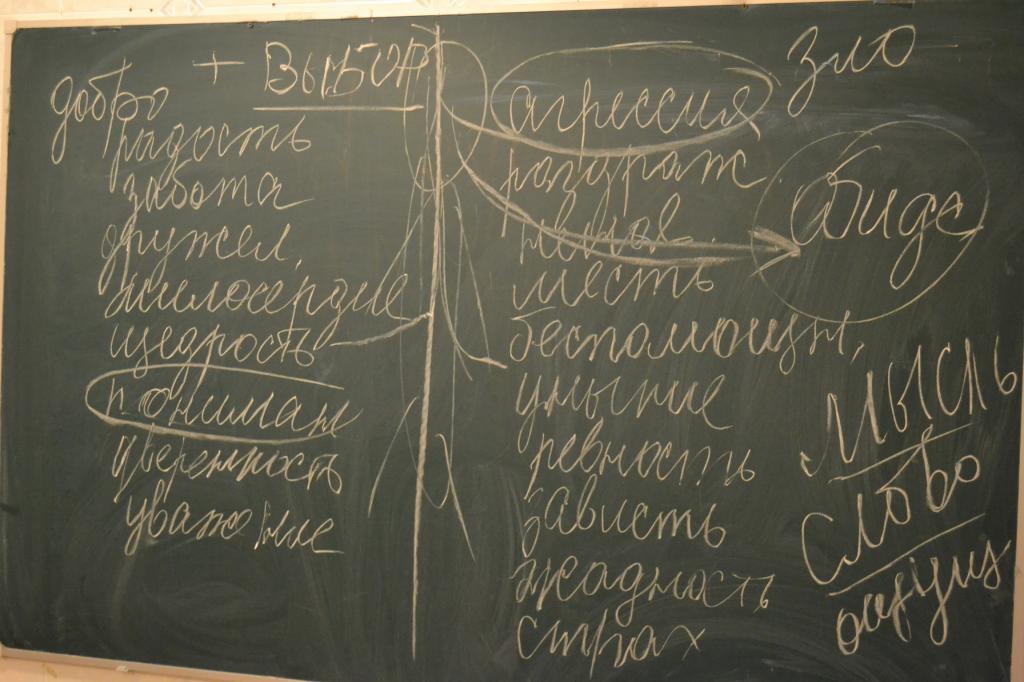 добро + ВЫБОР
радость
забота
дружел.
милосердие
щедрость
пониман
уверенность
уважение
зло
агрессия
раздраж
обида
месть
беспомощн,
уныние
ревность
зависть
жадность
страх
Мысль
Слово